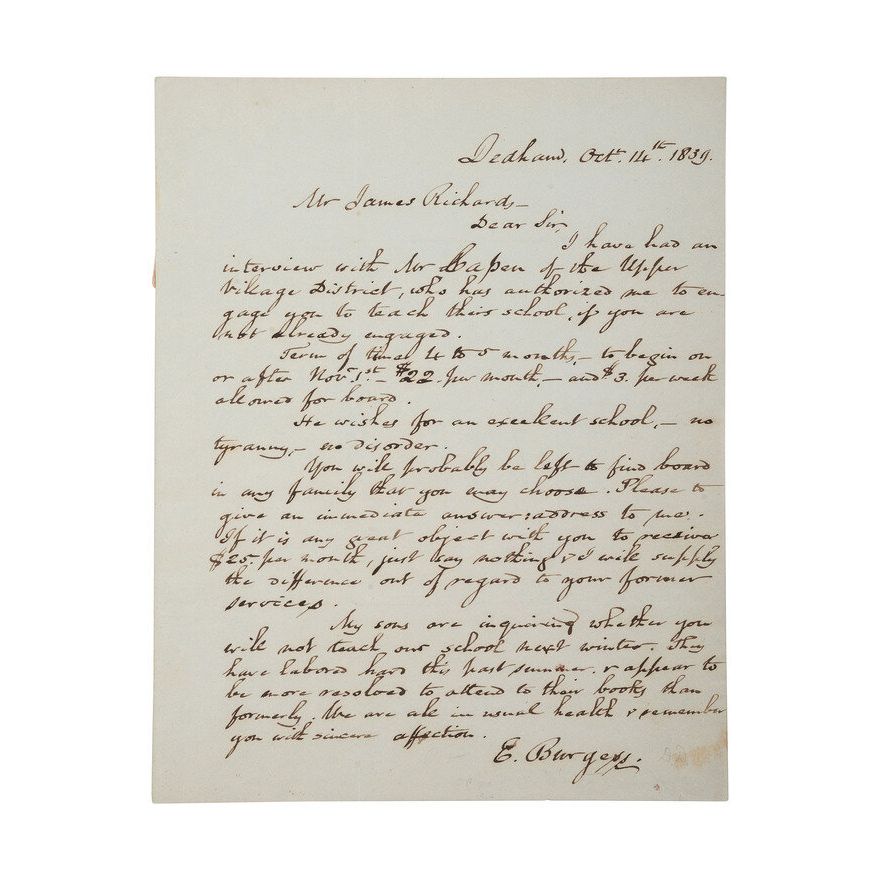 Dedham. Octr. 14th. 1839.
Mr James Richards,-
Dear Sir,
I have had an
interview with Mr Capen of the Upper
Village District, who has authorized me to en-
gage you to teach their school, if you are
not already engaged.
Term of time 4 to 5 months, - to begin on
or after Novr. 1st. - $22. per month, - and $3. per week
allowed for board.
He wishes for an excellent school, - no
tyranny, - no disorder.
You will probably be left to find board
in any family that you may choose. Please to
give an immediate answer: address to me.
If it is any great object with you to receive
$25. per month, just say nothing & I will supply
the difference out of regard to your former
services.
My sons are inquiring whether you
will not teach our school next winter. They
have labored hard this past summer. & appear to
be more resolved to attend to their books than
formerly. We are all in usual health & remember
you with sincere affection.
E. Burgess.